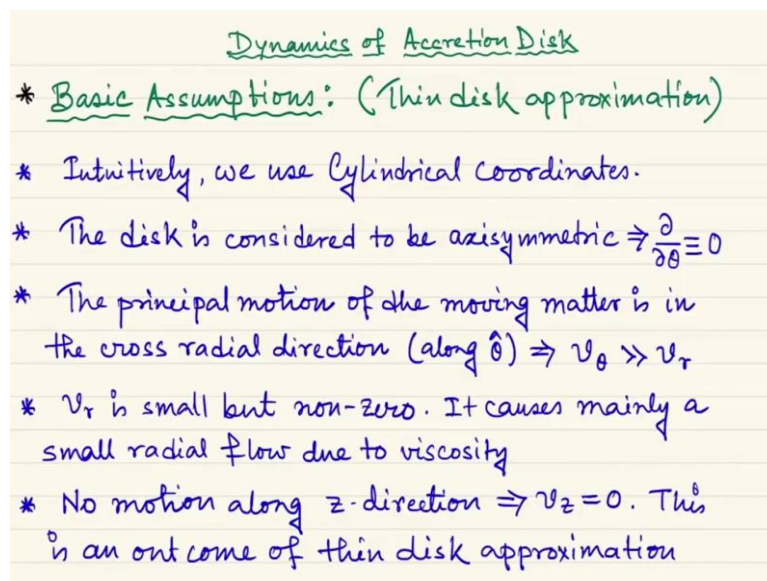 Dynamics of Accretion Disk
* Basic Assumptions: (Thin disk approximation)
* Intuitively, we use Cylindrical coordinates.
* The disk is considered to be axisymmetric ⇒ ∂/∂θ ≡ 0
* The principal motion of the moving matter is in
the cross radial direction (along θ̂) ⇒ v_θ >> v_r
* v_r is small but non-zero. It causes mainly a
small radial flow due to viscosity
* No motion along z-direction ⇒ v_z = 0. This
is an outcome of thin disk approximation